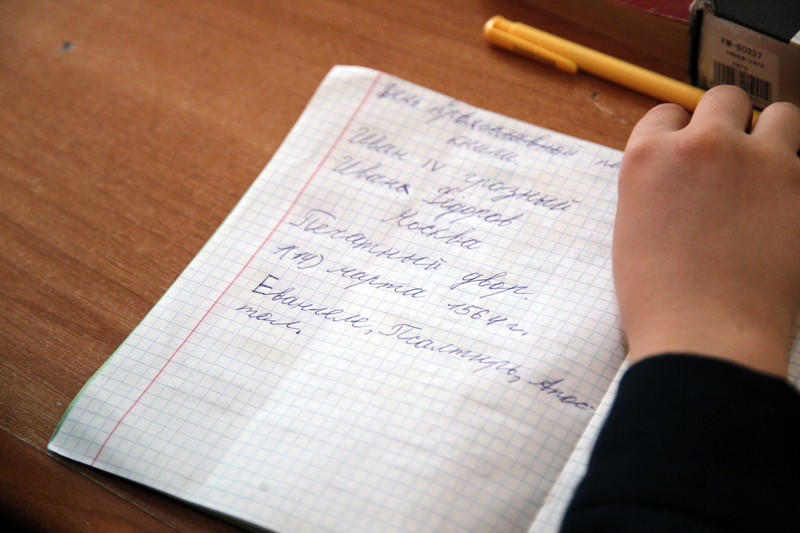 День православной
книги.
Иван IV грозный
Иван Фёдоров
Москва
Печатный двор.
1(14) марта 1564 г.
Евангеле, Псалтирь, Апос-
тол.
УМ-00337